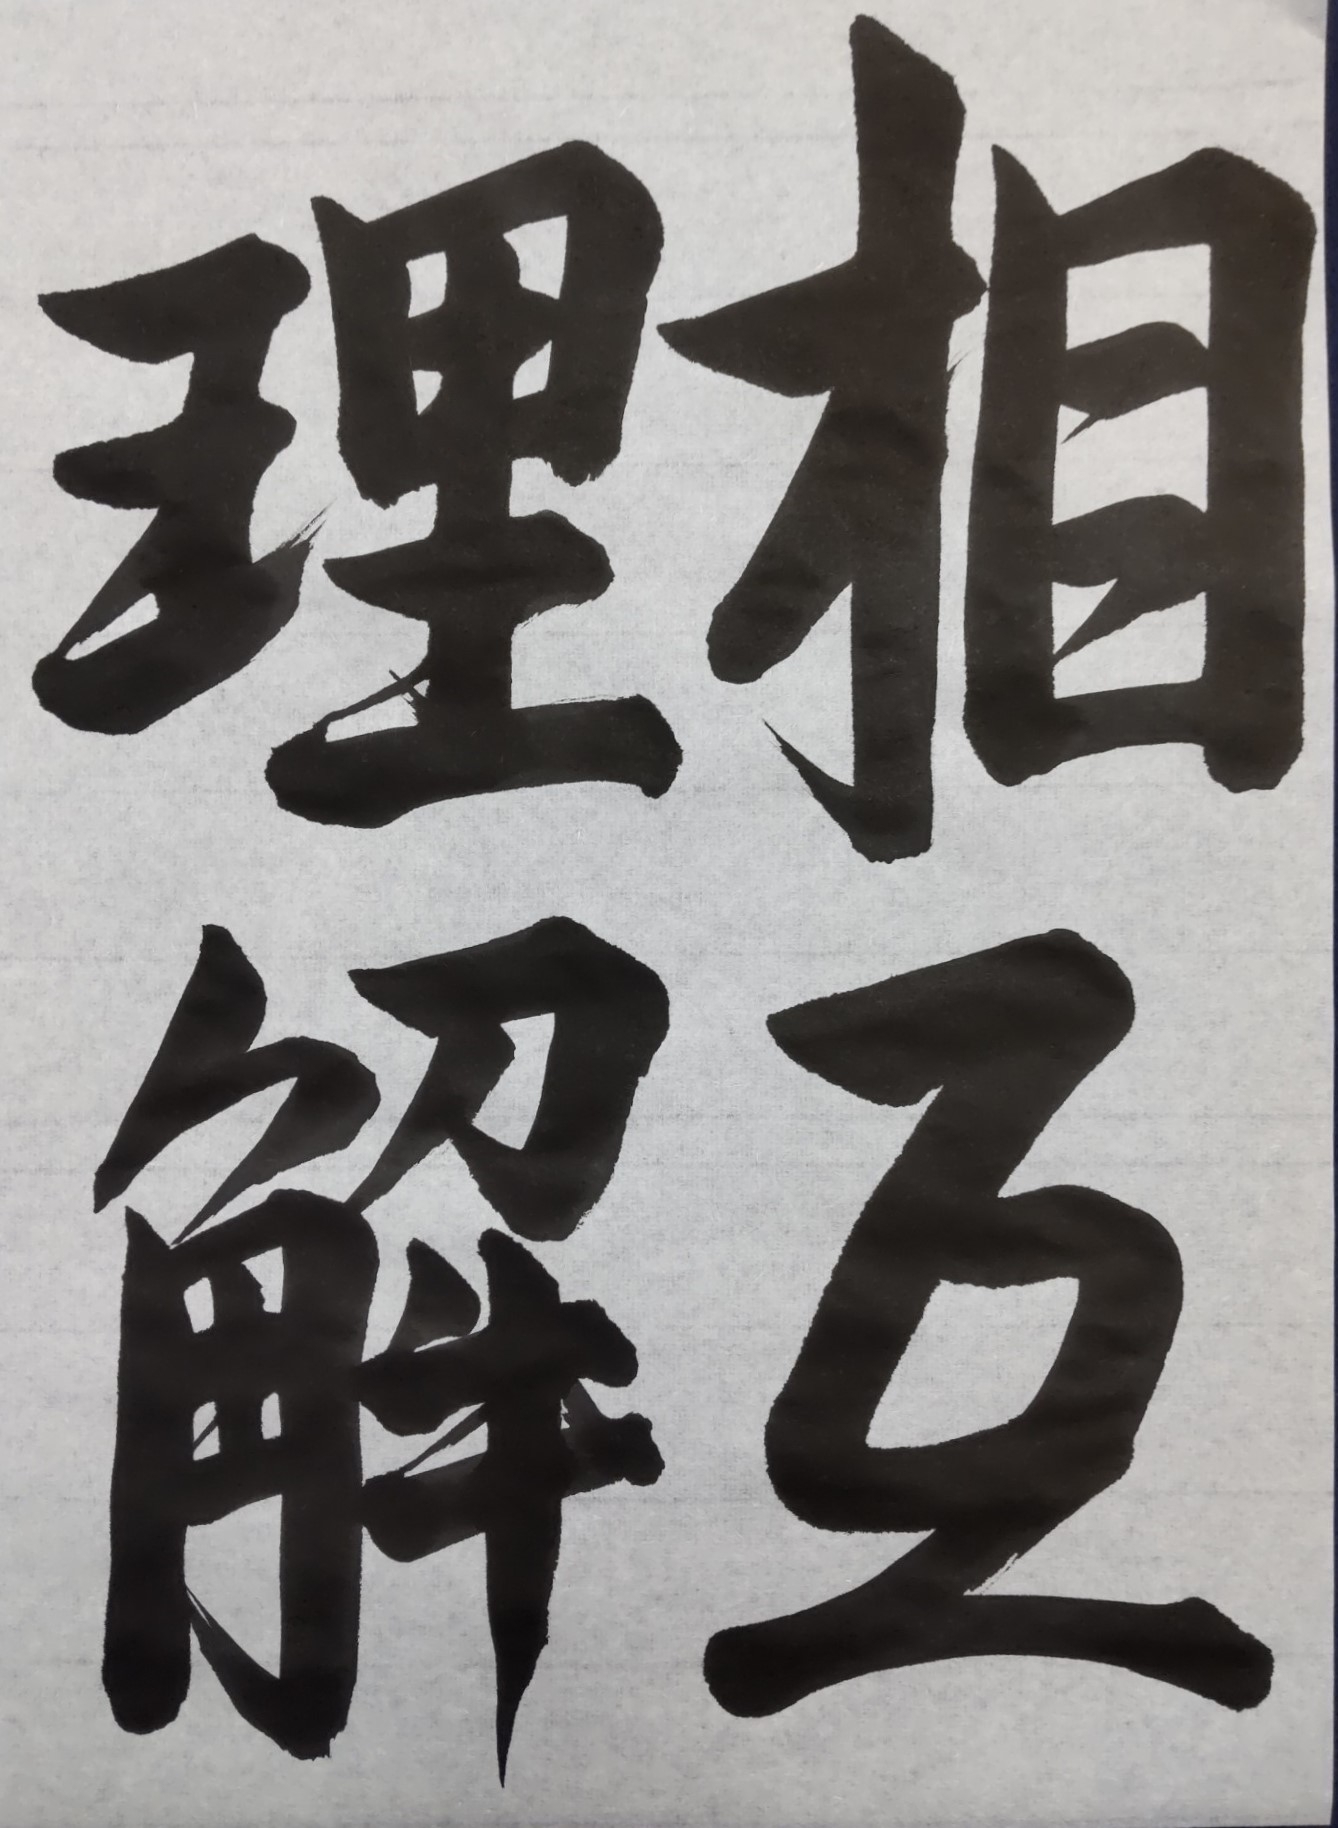 相互
理解